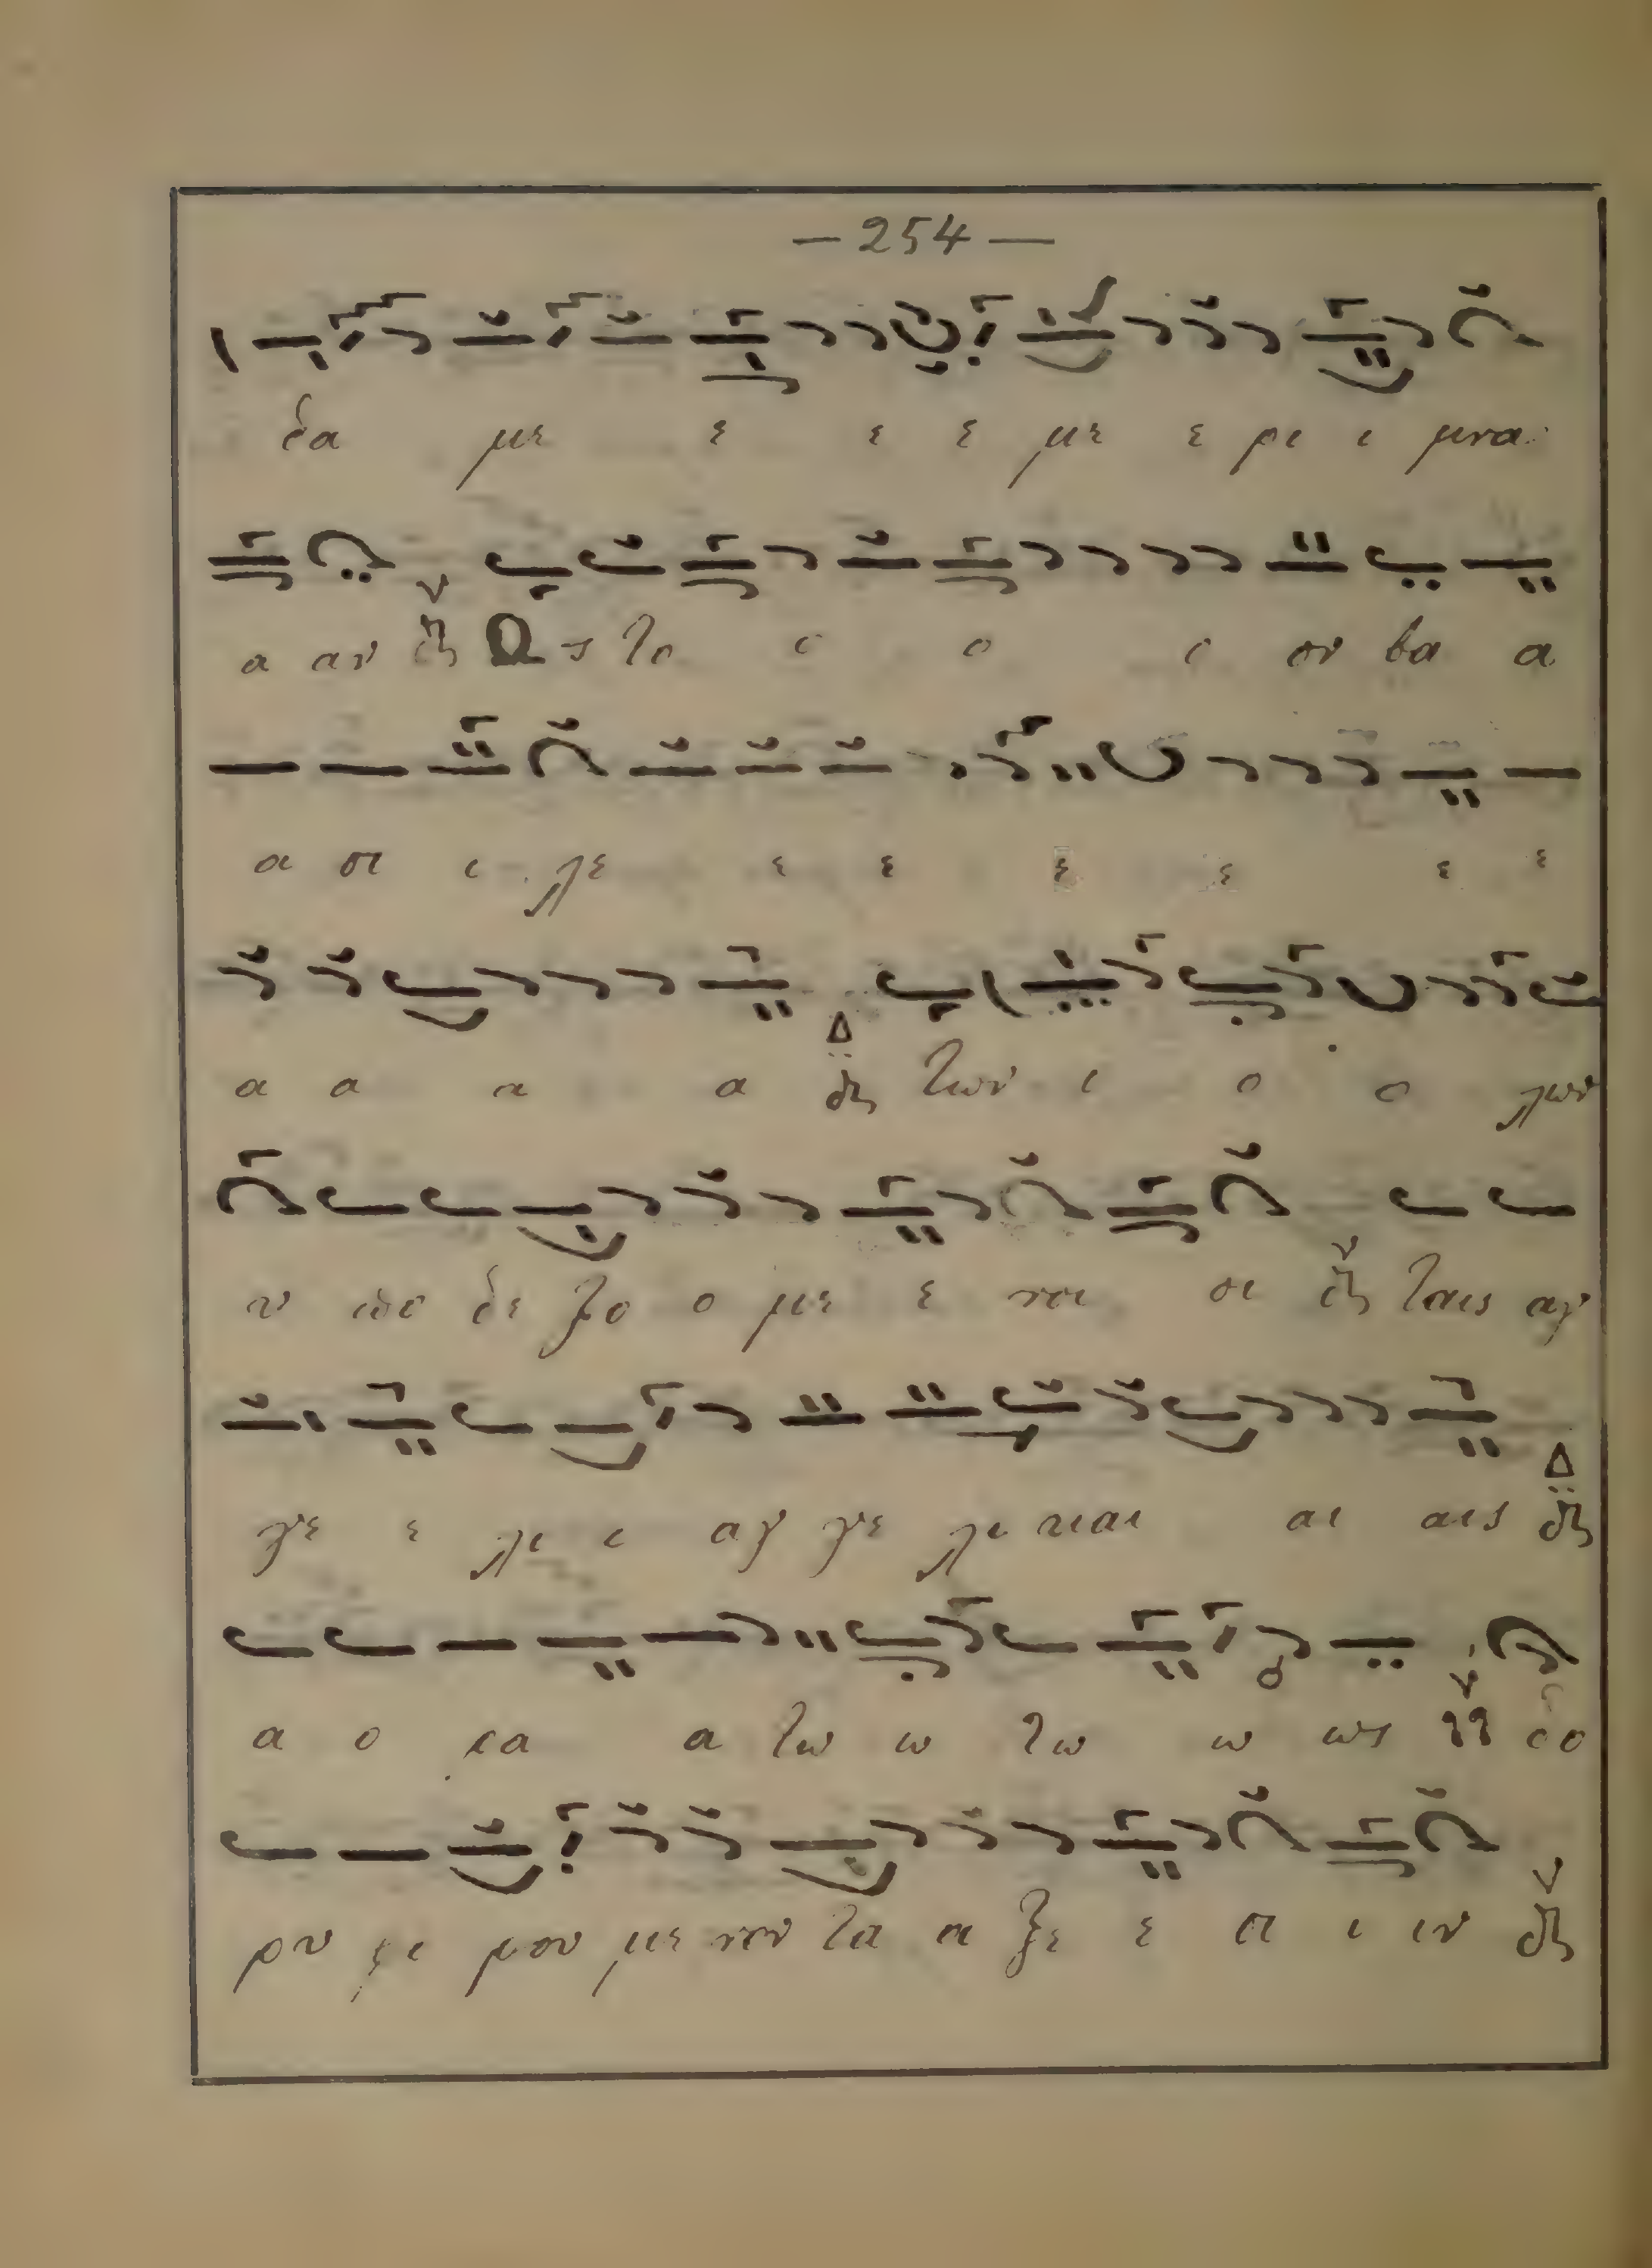 — 254 —
θα με ε ε ε με ε ρι ι μνα
α αν Ω ς το ο ο ο ον βα α
α σι ι λε ε ε ε ε ε ε
α α α α των ι ο ο λων
υ πο δε ξο ο με ε νοι οι ταις αγ
γε ε λι ι αγ γε λι καις αι αις
α ο ρα α τω ω τω ω ως δο
ρυ φο ρου με νον τα α ξε ε σι ι ιν